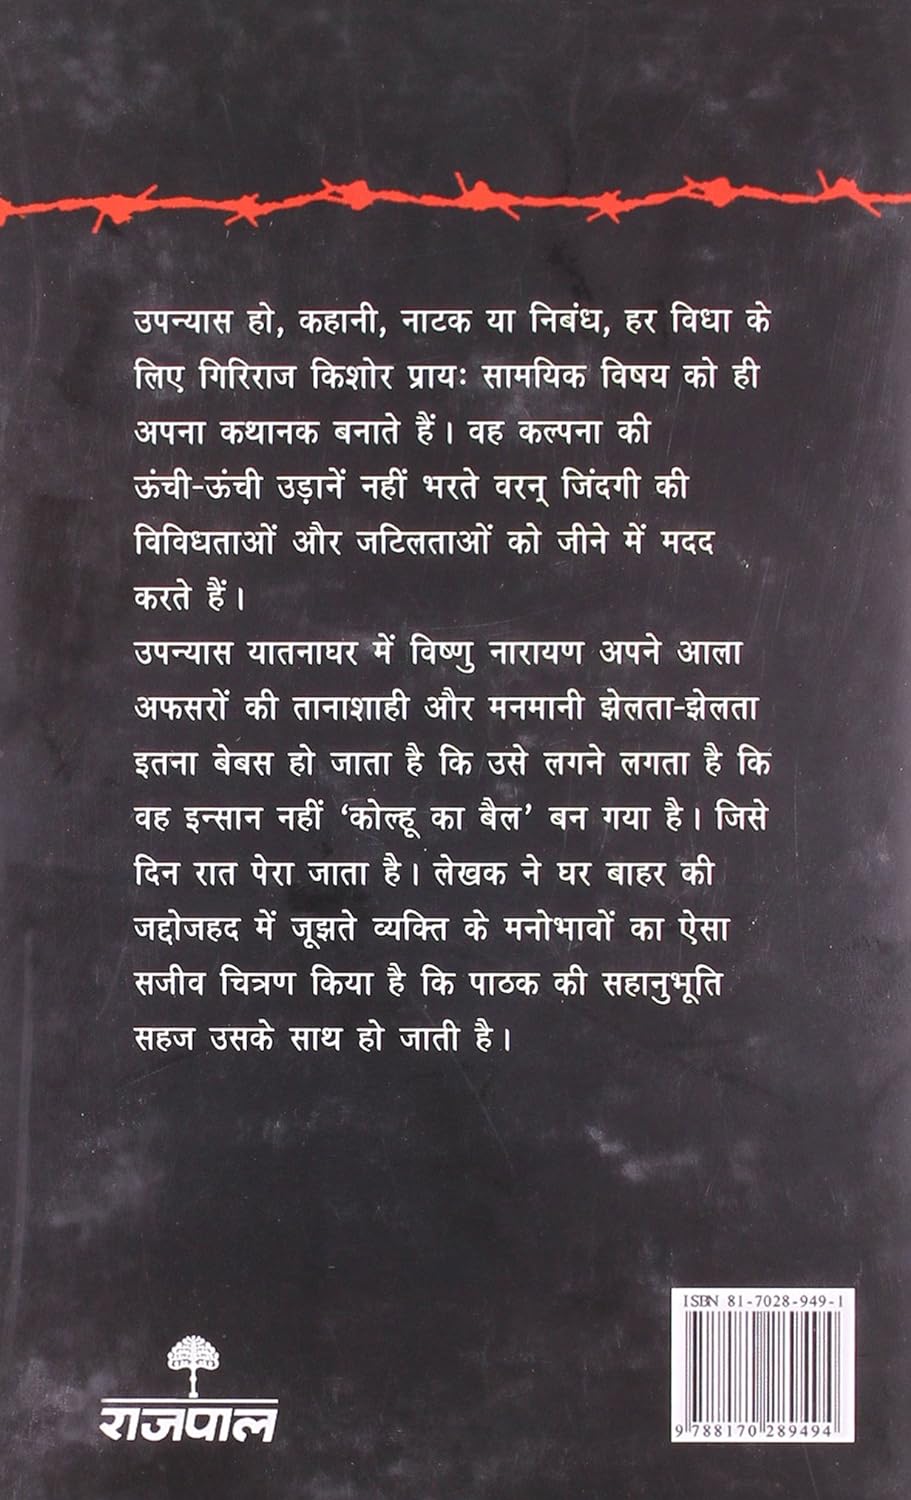 उपन्यास हो, कहानी, नाटक या निबंध, हर विधा के
लिए गिरिराज किशोर प्रायः सामयिक विषय को ही
अपना कथानक बनाते हैं। वह कल्पना की
ऊंची-ऊंची उड़ानें नहीं भरते वरन् जिंदगी की
विविधताओं और जटिलताओं को जीने में मदद
करते हैं।
उपन्यास यातनाघर में विष्णु नारायण अपने आला
अफसरों की तानाशाही और मनमानी झेलता-झेलता
इतना बेबस हो जाता है कि उसे लगने लगता है कि
वह इन्सान नहीं ‘कोल्हू का बैल’ बन गया है। जिसे
दिन रात पेरा जाता है। लेखक ने घर बाहर की
जद्दोजहद में जूझते व्यक्ति के मनोभावों का ऐसा
सजीव चित्रण किया है कि पाठक की सहानुभूति
सहज उसके साथ हो जाती है।
ISBN 81-7028-949-1
9 788170 289494
राजपाल